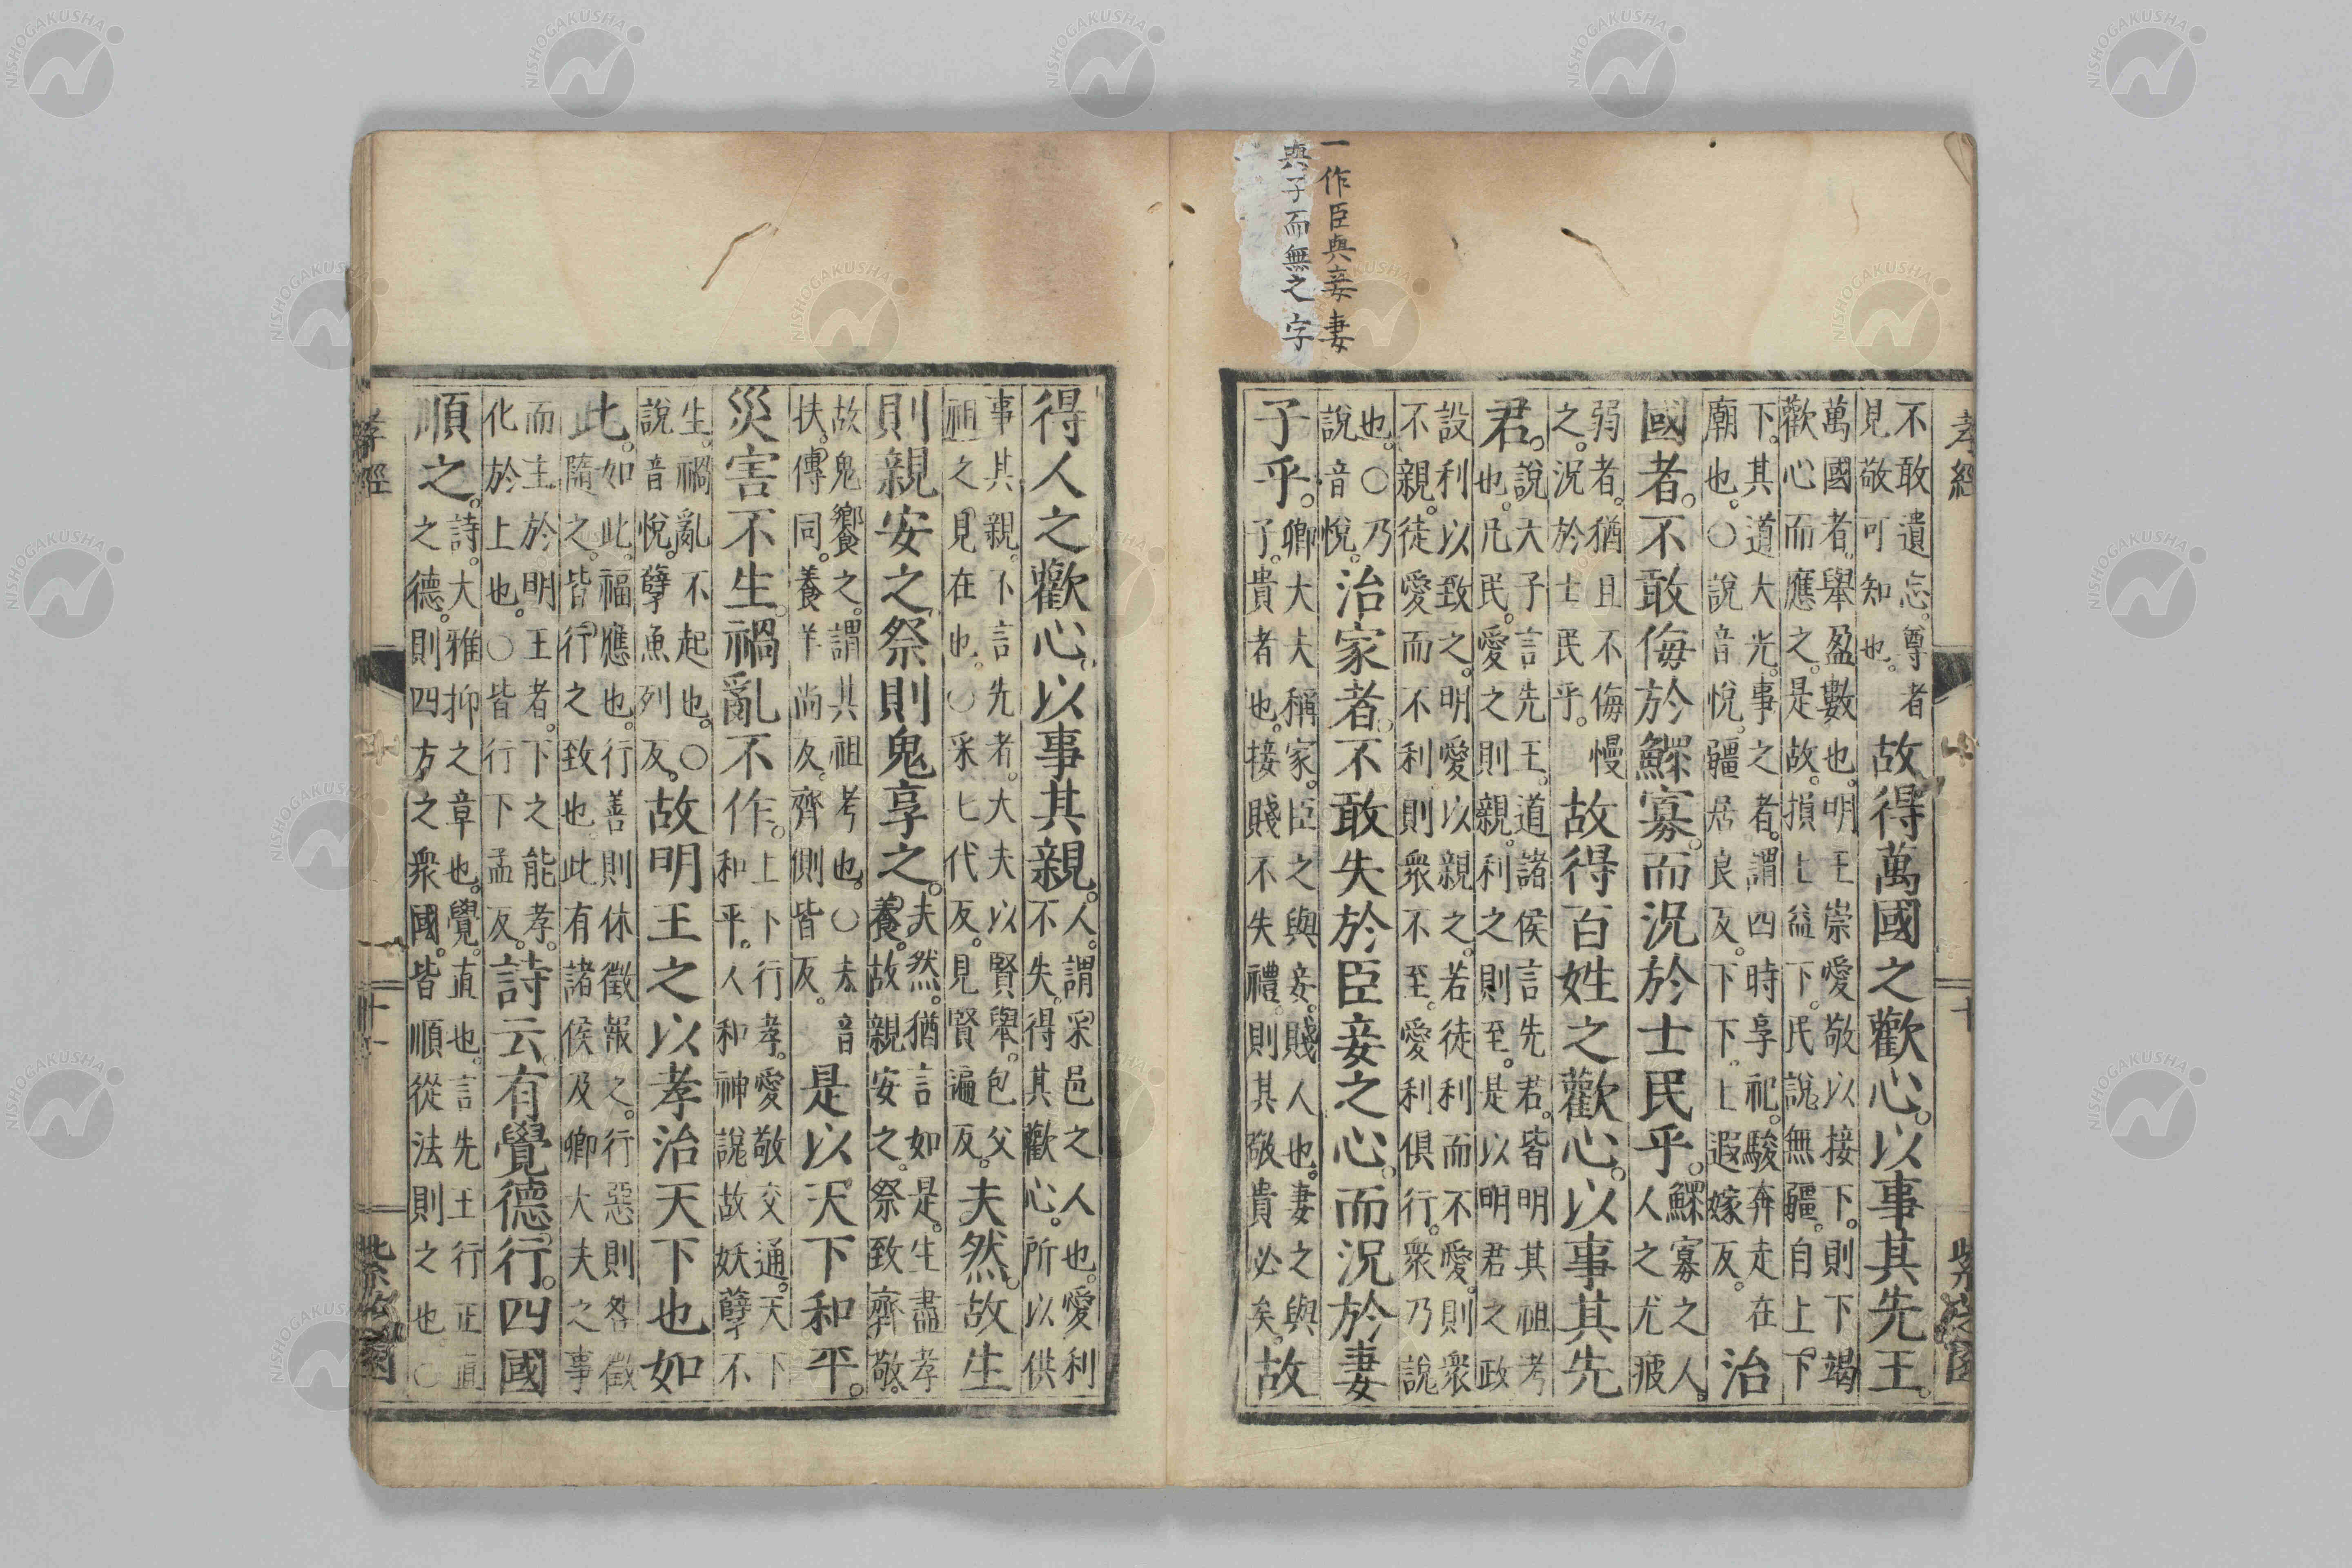 一作臣與妾妻
與子而無之字
孝經
十
不敢遺忘。尊者
見敬可知也。
故得萬國之歡心。以事其先王。
萬國者。舉盈數也。明王崇愛敬以接下。則下竭
歡心而應之。是故。損上益下。民說無疆。自上下
下。其道大光。事之者。謂四時享祀。駿奔走在
廟也。○說音悅。疆居良反。下下。上遐嫁反。
治
國者。不敢侮於鰥寡。而況於士民乎。
鰥寡之人。
人之尤疲
弱者。猶且不侮慢
之。況於士民乎。
故得百姓之歡心。以事其先
君。
說大子言先王。道諸侯言先君。皆明其祖考
也。凡民。愛之則親。利之則至。是以明君之政
設利以致之。明愛以親之。若徒利而不愛。則衆
不親。徒愛而不利。則衆不至。愛利俱行。衆乃說
也。○乃
說音悅。
治家者。不敢失於臣妾之心。而況於妻
子乎。
卿大夫稱家。臣之與妾。賤人也。妻之與
子。貴者也。接賤不失禮。則其敬貴必矣。
故
得人之歡心。以事其親。
人。謂采邑之人也。愛利
不失。得其歡心。所以供
事其親。不言先者。大夫以賢舉。包父
祖之見在也。○采七代反。見賢遍反。
夫然。故生
則親安之。祭則鬼享之。
夫然。猶言如是。生盡孝
養。故親安之。祭致齊敬。
故鬼饗之。謂其祖考也。○夫音
扶。傳同。養羊尚反。齊側皆反。
是以天下和平。
災害不生。禍亂不作。
上下行孝。愛敬交通。天下
和平。人和神說。故妖孽不
生。禍亂不起也。○
說音悅。孽魚列反。
故明王之以孝治天下也如
此。
如此。福應也。行善則休徵報之。行惡則咎徵
隨之。皆行之致也此有諸侯及卿大夫之事
而主於明王者。下之能孝。
化於上也。○皆行下孟反。
詩云。有覺德行。四國
順之。
詩。大雅抑之章也。覺。直也。言先王行正直
之德。則四方之衆國。皆順從法則之也。○
孝經
十一
NISHOGAKUSHA